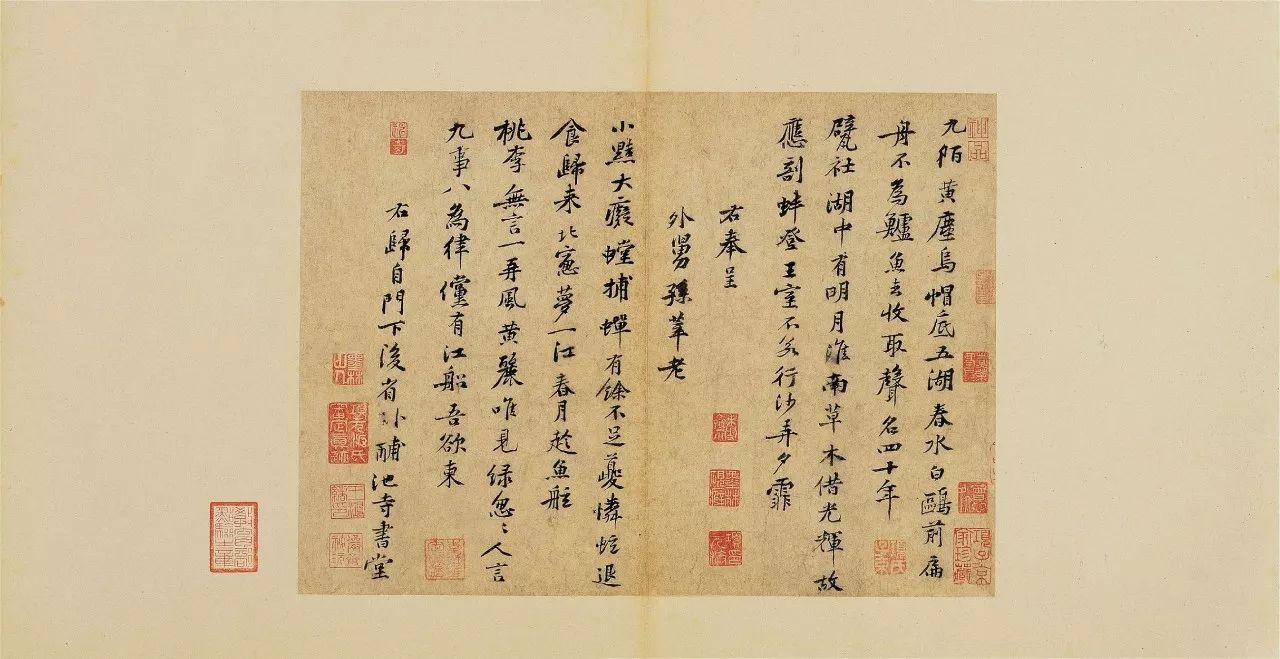 九陌黄塵烏帽底五湖春水白鷗前扁
舟不為鱸魚去收取聲名四十年
甓社湖中有明月淮南草木借光輝故
應剖蚌登王室不若行沙弄夕霏
右奉呈
外舅孫莘老
小黠大癡螳捕蟬有餘不足夔憐蚿退
食歸来北窓夢一江春月趁魚舡
桃李無言一再風黄鸝唯見緑怱〻人言
九事八為律儻有江船吾欲東
右歸自門下後省卧酺池寺書堂
項子京家珍藏
墨林山人